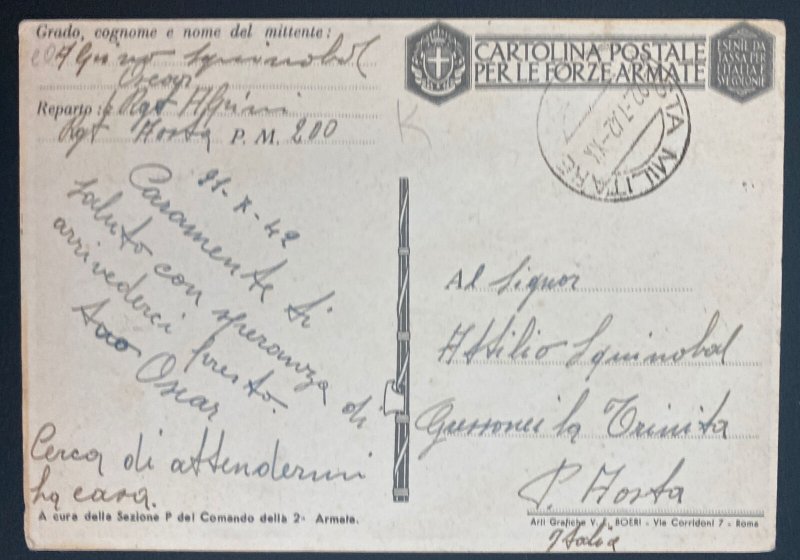 Grado, cognome e nome del mittente:
Squinobal
Oscar
Reparto: Rgt Alpini
Rgt Aosta P. M. 200
CARTOLINA POSTALE
PER LE FORZE ARMATE
ESENTE DA
TASSA PER
L'ITALIA E
REGIONE
POSTA MILITARE
-42-XX
-X-42
Caramente ti
saluto con speranza di
arrivederci presto.
tuo Oscar
Cerca di attendermi
ha casa.
Al Signor
Attilio Squinobal
Gressonei la Trinita
P. Aosta
Italia
A cura della Sezione P del Comando della 2ª Armata.
Arti Grafiche V. E. BOERI - Via Corridoni 7 - Roma